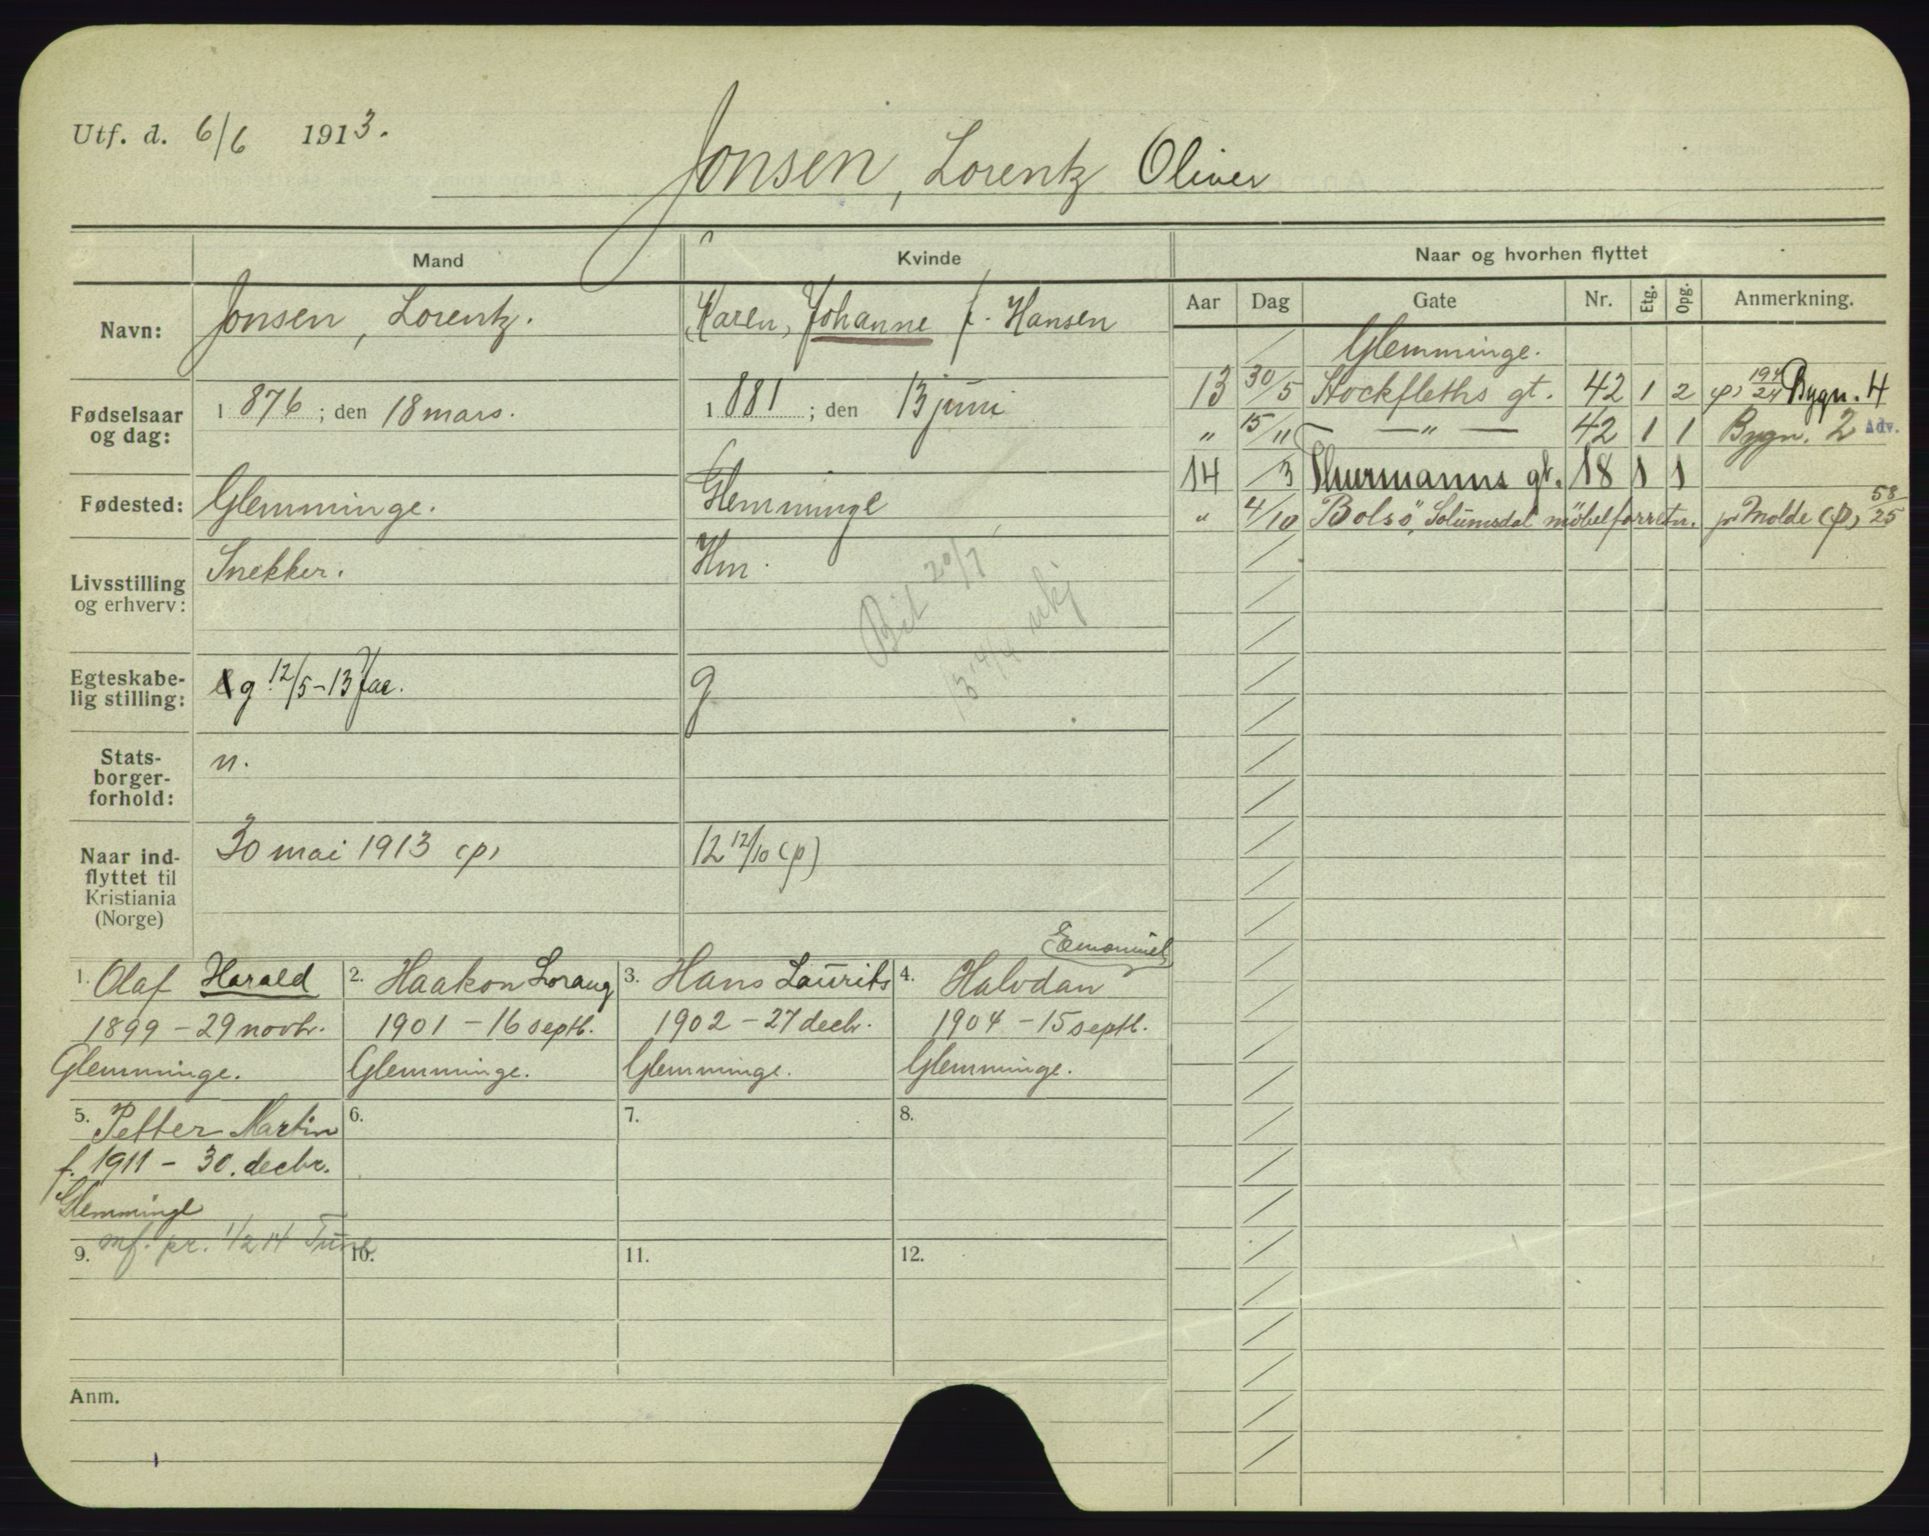 Utf. d. 6/6 1913.
Jonsen, Lorentz Oliver
Mand
Kvinde
Naar og hvorhen flyttet
Navn:
Jonsen, Lorentz.
Karen, Johanne f. Hansen
Aar Dag Gate Nr. Etg. Opg. Anmerkning.
Glemminge.
13 30/5 Stockfleths gt. 42 1 2 (p) 194/24 Bygn. 4
" 15/11 — " — 42 1 1 Bygn. 2 Adv.
14 /3 Thurmanns gt. 18 1 1
" 4/10 Bolsö, Solumsdal möbelforretn. pr Molde (p) 58/25
Fødselsaar og dag:
1876; den 18 mars.
1881; den 13 juni
Fødested:
Glemminge.
Glemminge
Livsstilling og erhverv:
Snekker.
Hm.
20/7
Egteskabe-
lig stilling:
g. 12/5-13
g
Stats-
borger-
forhold:
n.
Naar ind-
flyttet til
Kristiania
(Norge)
30 mai 1913 (p)
12 12/10 (p)
1. Olaf Harald
1899 - 29 novbr.
Glemminge.
2. Haakon Loraug
1901 - 16 septb.
Glemminge.
3. Hans Laurits
1902 - 27 decbr.
Glemminge.
Emanuiel
4. Halvdan
1904 - 15 septb.
Glemminge.
5. Petter Martin
f. 1911 - 30. decbr.
Glemminge
mf. pr. 1/2 14 Tune
6.
7.
8.
9.
10.
11.
12.
Anm.